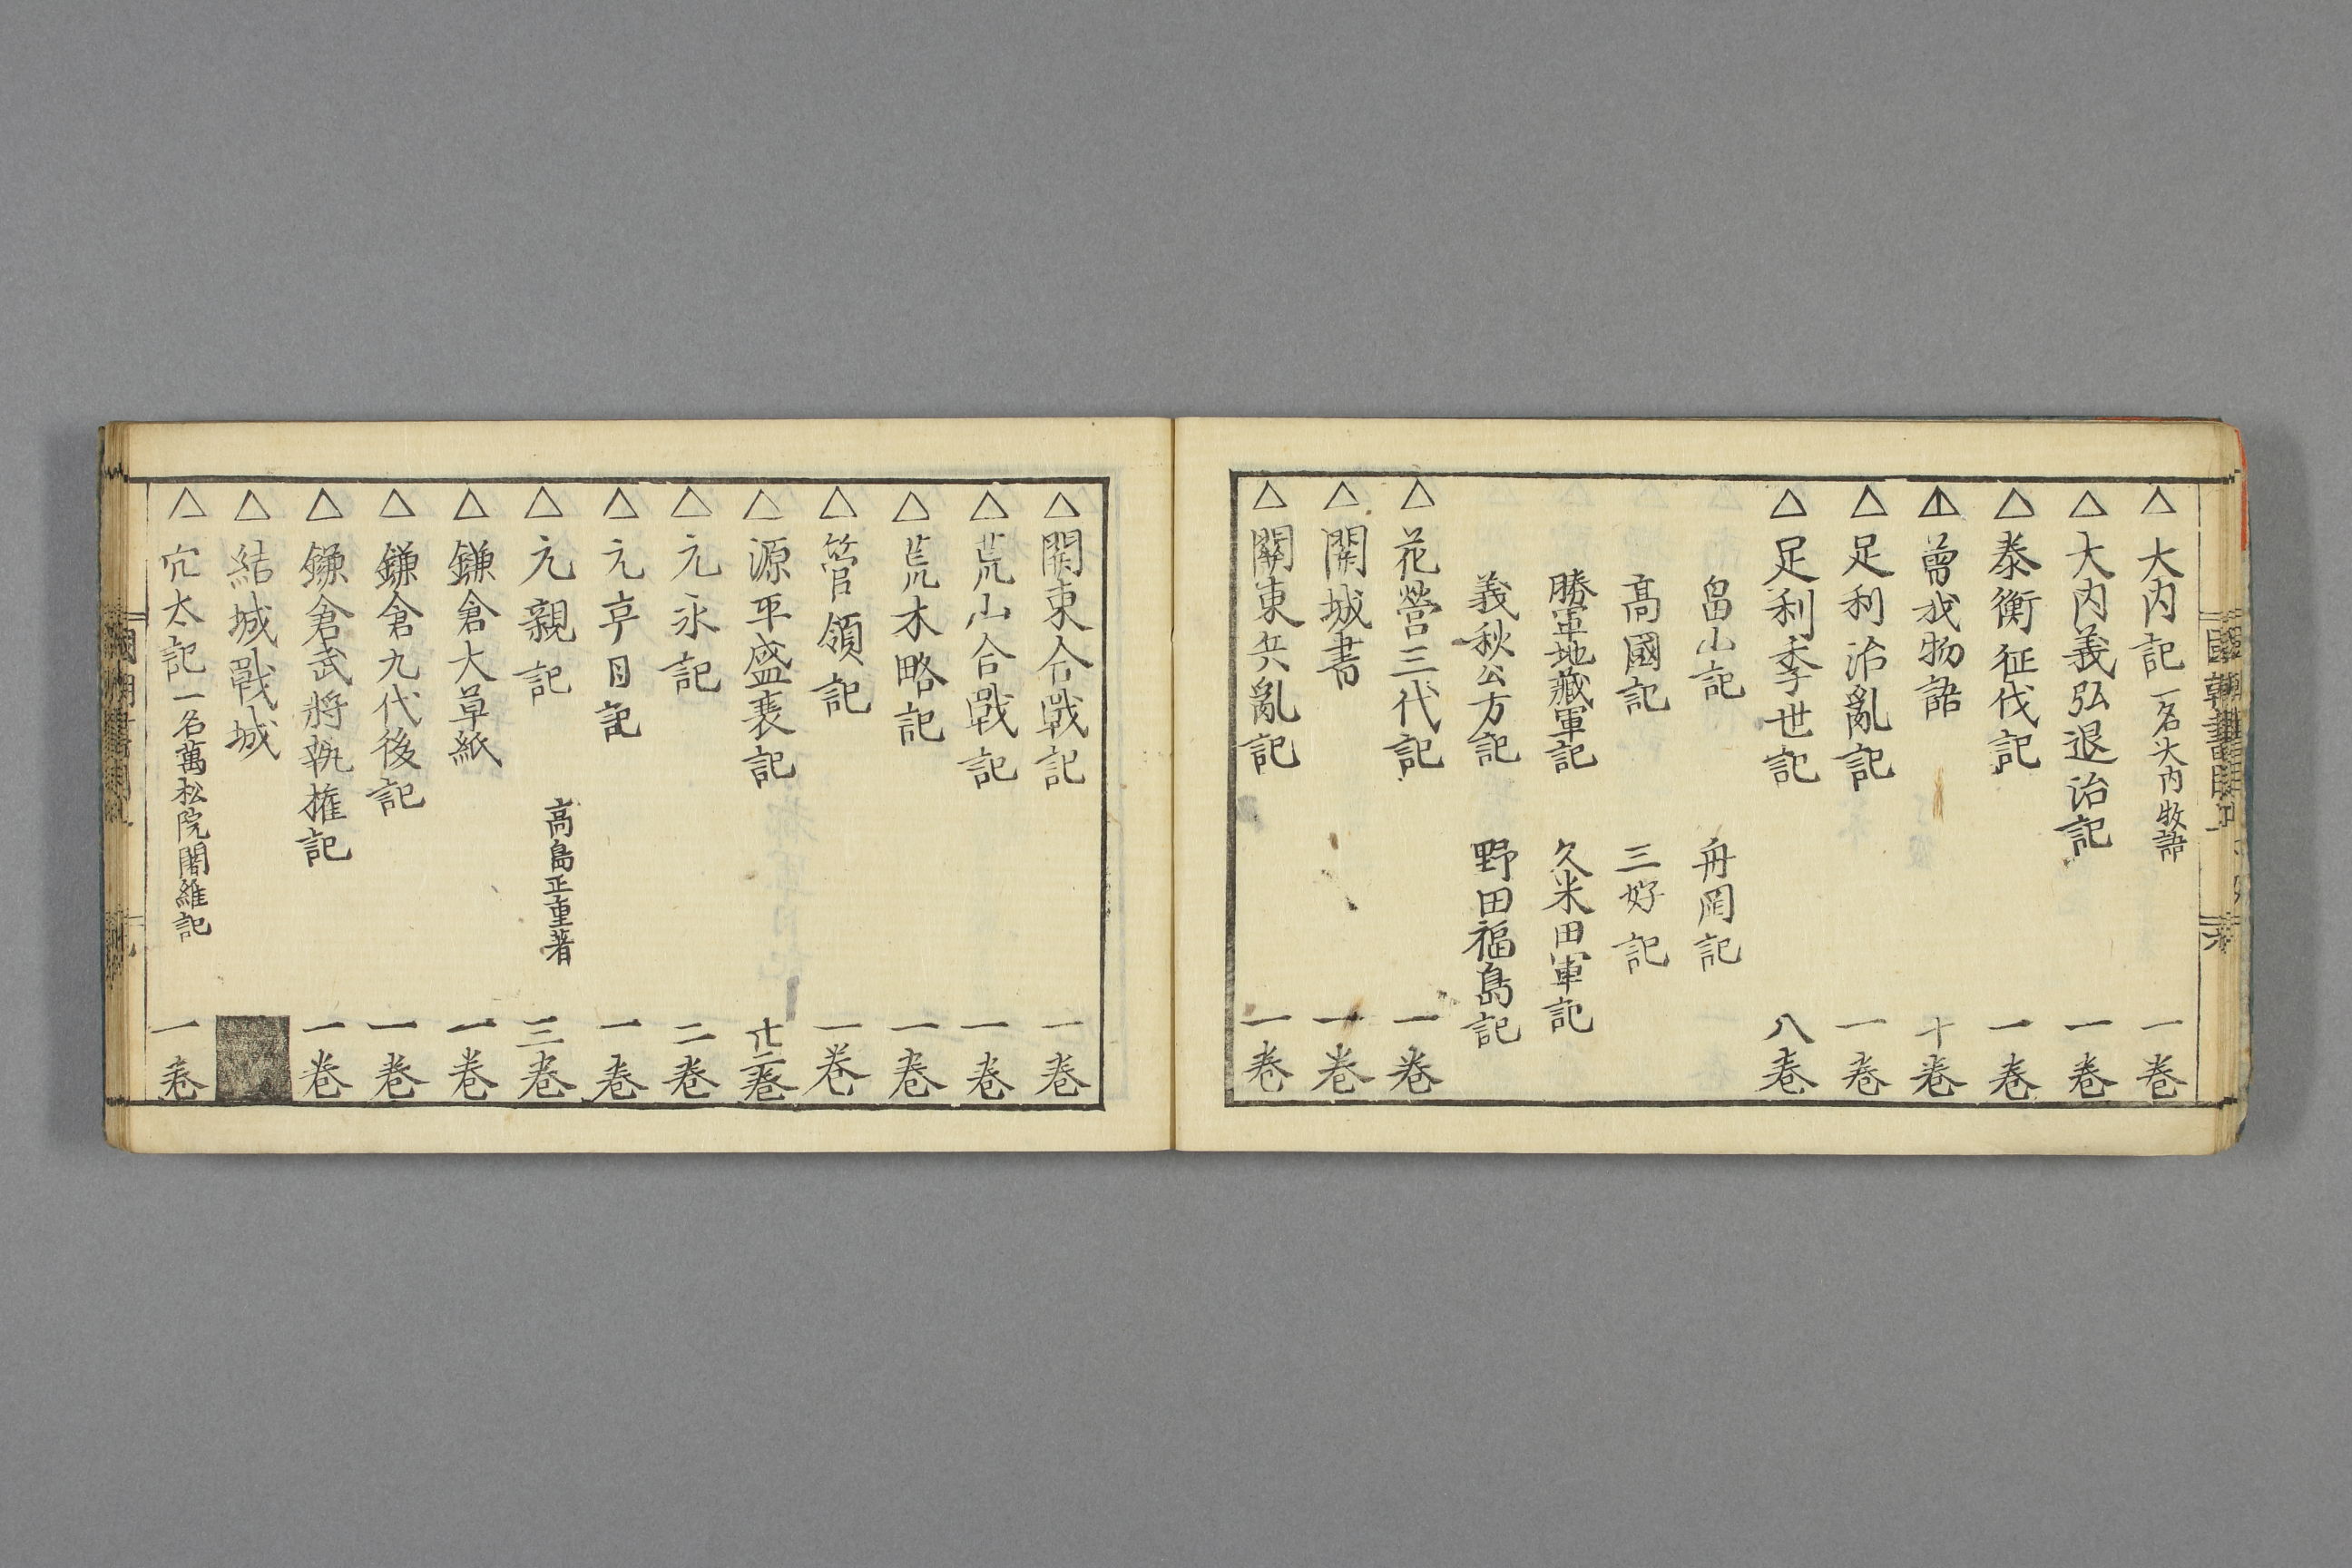 △大内記 一名大内牧語 一巻
△大内義弘退治記 一巻
△泰衡征伐記 一巻
△曽我物語 十巻
△足利治亂記 一巻
△足利季世記 八巻
畠山記 舟岡記
高國記 三好記
勝軍地藏軍記 久米田軍記
義秋公方記 野田福島記
△花營三代記 一巻
△関城書 一巻
△關東兵亂記 一巻
△関東合戰記 一巻
△荒山合戰記 一巻
△荒木略記 一巻
△管領記 一巻
△源平盛衰記 廿二巻
△元永記 二巻
△元亨日記 一巻
△元親記 高島正重著 三巻
△鎌倉大草紙 一巻
△鎌倉九代後記 一巻
△鎌倉武將執権記 一巻
△結城戰城
△穴太記 一名萬松院闍維記 一巻